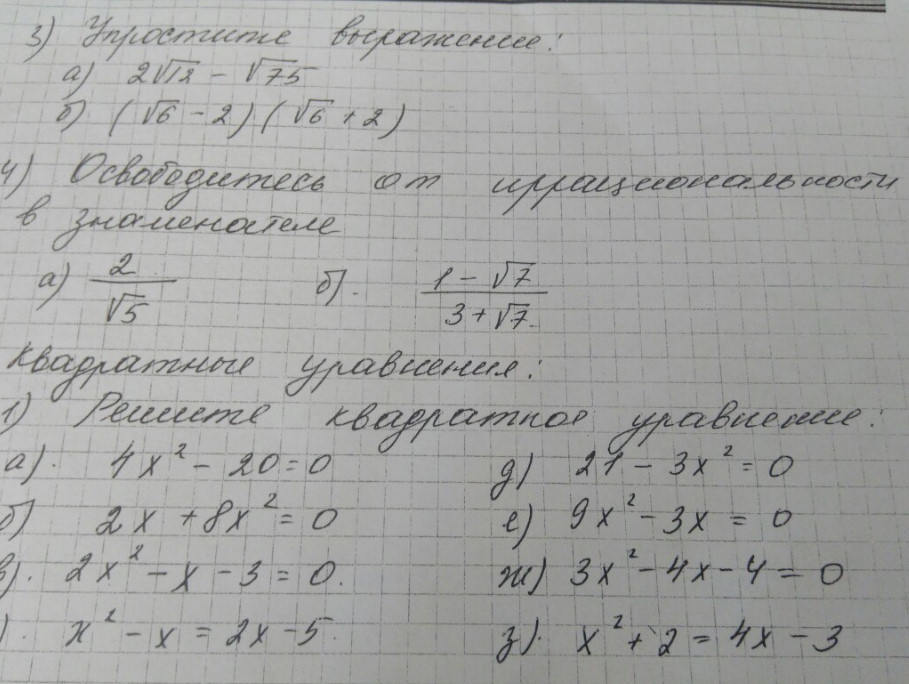 3) Упростите выражение:
а) 2√12 - √75
б) (√6 - 2)(√6 + 2)
4) Освободитесь от иррациональности
в знаменателе
а) 2/√5 б). (1 - √7)/(3 + √7).
Квадратные уравнения:
1) Решите квадратное уравнение:
а). 4x² - 20 = 0 д) 21 - 3x² = 0
б) 2x + 8x² = 0 е) 9x² - 3x = 0
в). 2x² - x - 3 = 0. ж) 3x² - 4x - 4 = 0
). x² - x = 2x - 5. з). x² + 2 = 4x - 3